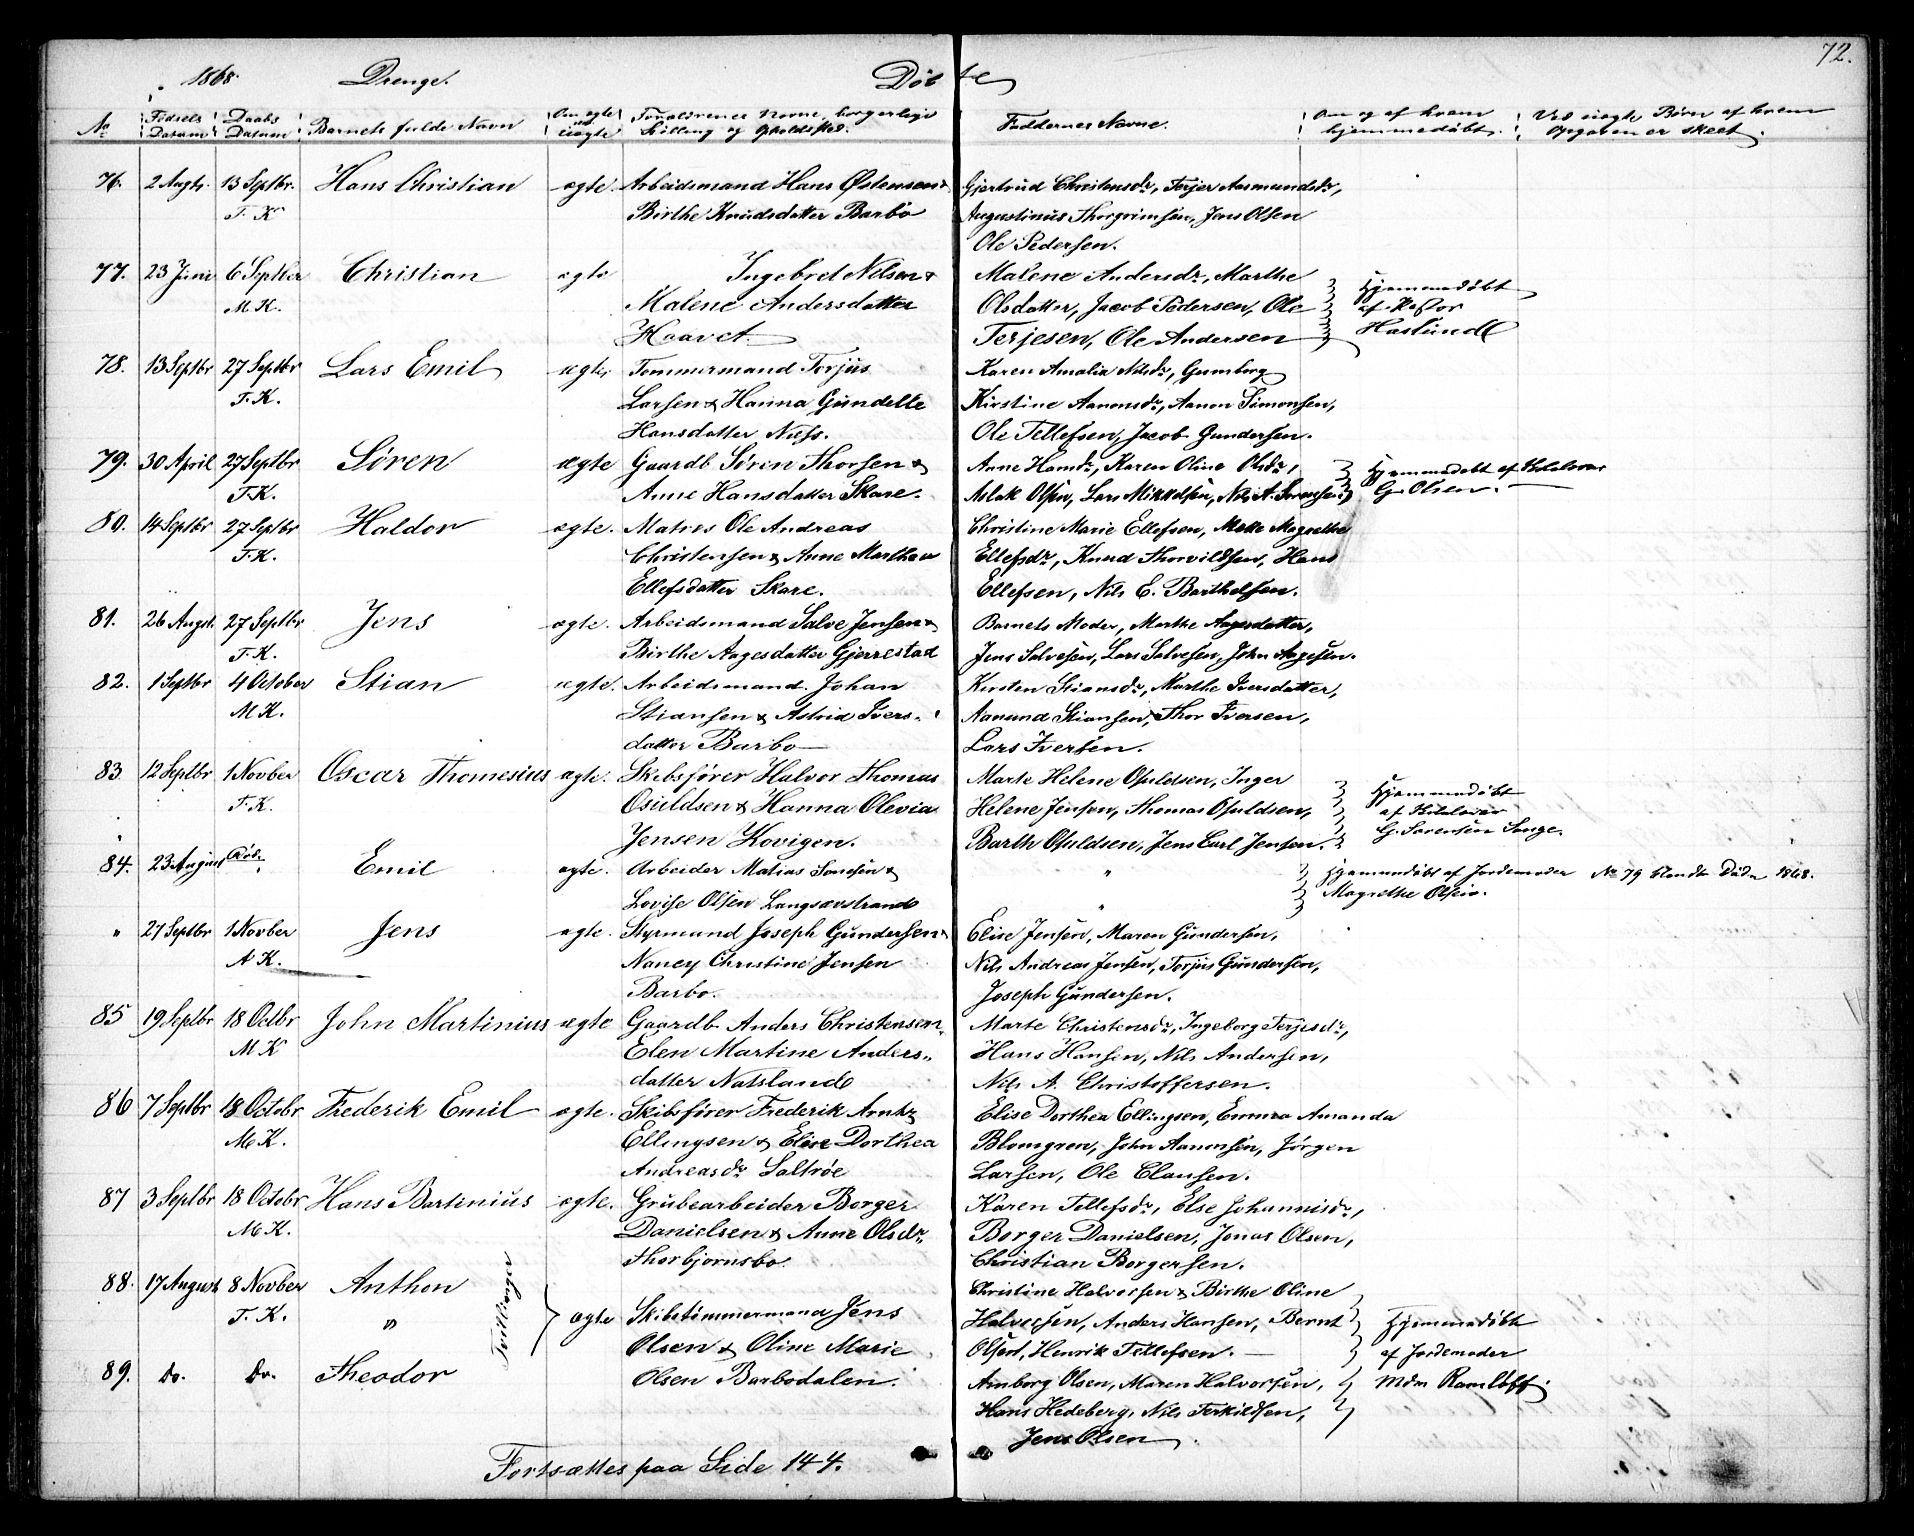 72.
1868. Drenge. Døbte
No Fødsels Datum Daabs Datum Barnets fulde Navn Om ægte el. uægte Forældrenes Navne, borgerlige Stilling og Opholdsted. Faddernes Navne. Om og af hvem hjemmedøbt. Ved uægte Børn af hvem Opgaven er skeet.
76. 2 Augt. 13 Septbr. Hans Christian ægte. Arbeidsmand Hans Østensen & Gjertrud Christensdr, Terjer Aasmundsdr,
T. K. Birthe Knudsdatter Barbo Augustinus Thorgrimsen, Jens Olsen
Ole Pedersen.
77. 23 Juni 6 Septber Christian ægte Ingebret Nilsen & Malene Andersdr, Marthe Hjemmedøbt
M. K. Malene Andersdatter Olsdatter, Jacob Pedersen, Ole af Pastor
Haavet Terjesen, Ole Andersen Haslund
78. 13 Septbr 27 Septbr Lars Emil ægte. Tømmermand Torjus Karen Amalia Nilsdr, Gunborg
T. K. Larsen & Hanna Gundelle Kirstine Aanonsdr, Aanon Simonsen,
Hansdatter Næss. Ole Tellefsen, Jacob Gundersen.
79. 30 April 27 Septbr Søren ægte Gaardb Søren Thorsen & Anne Hansdr, Karen Oline Olsdr, Hjemmedøbt af Kirkelærer
T. K. Anne Hansdatter Skare. Aslak Olsen, Lars Mikkelsen, Nils A. Sørensen G. Olsen.
80. 14 Septbr 27 Septbr Haldor ægte. Matros Ole Andreas Christine Marie Ellefsen, Mette Magrethe
T. K. Christensen & Anne Marthea Ellefsdr, Knud Thorvildsen, Hans
Ellefsdatter Skare. Ellefsen, Nils E. Barthelsen.
81. 26 Augst. 27 Septbr Jens ægte. Arbeidsmand Salve Jensen & Barnets Moder, Marthe Aagesdatter,
T. K. Birthe Aagesdatter Gjerrestad Jens Salvesen, Lars Salvesen, John Aagesen.
82. 1 Septbr 4 October Stian ægte. Arbeidsmand. Johan Kirsten Stiansdr, Marthe Iversdatter,
M K. Stiansen & Astrid Ivers- Aanund Stiansen, Thor Iversen,
datter Barbo Lars Iversen.
83 12 Septbr 1 Novber Oscar Thomesius ægte. Skibsfører Halvor Thomas Marte Helene Osuldsen, Inger Hjemmedøbt
T. K. Osuldsen & Hanna Olevia Helene Jensen, Thomas Osuldsen, af
Jensen Kovigen. Barth Osuldsen, Jens Carl Jensen. G. Sørensen Songe.
84. 23 August Emil ægte. Arbeider Matias Tonesen & " Hjemmedøbt af Jordemoder No 79 blandt Døde 1868.
Lovise Olsen Langsævstrand " Magrethe Olsen.
" 27 Septbr 1 Novber Jens ægte. Styrmand Joseph Gundersen & Elise Jensen, Maren Gundersen,
A K. Nancy Christine Jensen Nils Andreas Jensen, Torjus Gundersen,
Barbo. Joseph Gundersen.
85 19 Septbr 18 Octbr John Martinius ægte Gaardb Anders Christensen & Marte Christensdr, Ingeborg Terjesdr,
M K Elen Martine Anders- Hans Hansen, Nils Andersen,
datter Natsland Nils A. Christoffersen.
86 7 Septbr 18 Octobr Frederik Emil ægte. Skibsfører Frederik Arntz Elise Dorthea Ellingsen, Emma Amanda
M K. Ellingsen & Elise Dorthea Blomgren, John Aanonsen, Jørgen
Andreasdr Saltrøe Larsen, Ole Clausen.
87 3 Septbr 18 Octobr Hans Bertinius ægte. Grubearbeider Borger Karen Tellefsdr, Else Johannisdr,
M K. Danielsen & Anne Olsdr Borger Danielsen, Jonas Olsen,
Thorbjørnsbo. Christian Borgersen.
88. 17 August 8 Novber Anthon Tvillinger Christine Halvorsen & Birthe Oline
T. K. " ægte Skibstømmermand Jens Halvorsen, Anders Hansen, Bernt Hjemmedøbt
Olsen & Oline Marie Olsen, Henrik Tellefsen. af Jordemoder
89. Do. Do. Theodor Olsen Barbodalen. Amborg Olsen, Maren Halvorsen, Mdm Ramløff.
Hans Hedeberg, Nils Terkildsen,
Jens Olsen
Fortsættes paa Side 144.